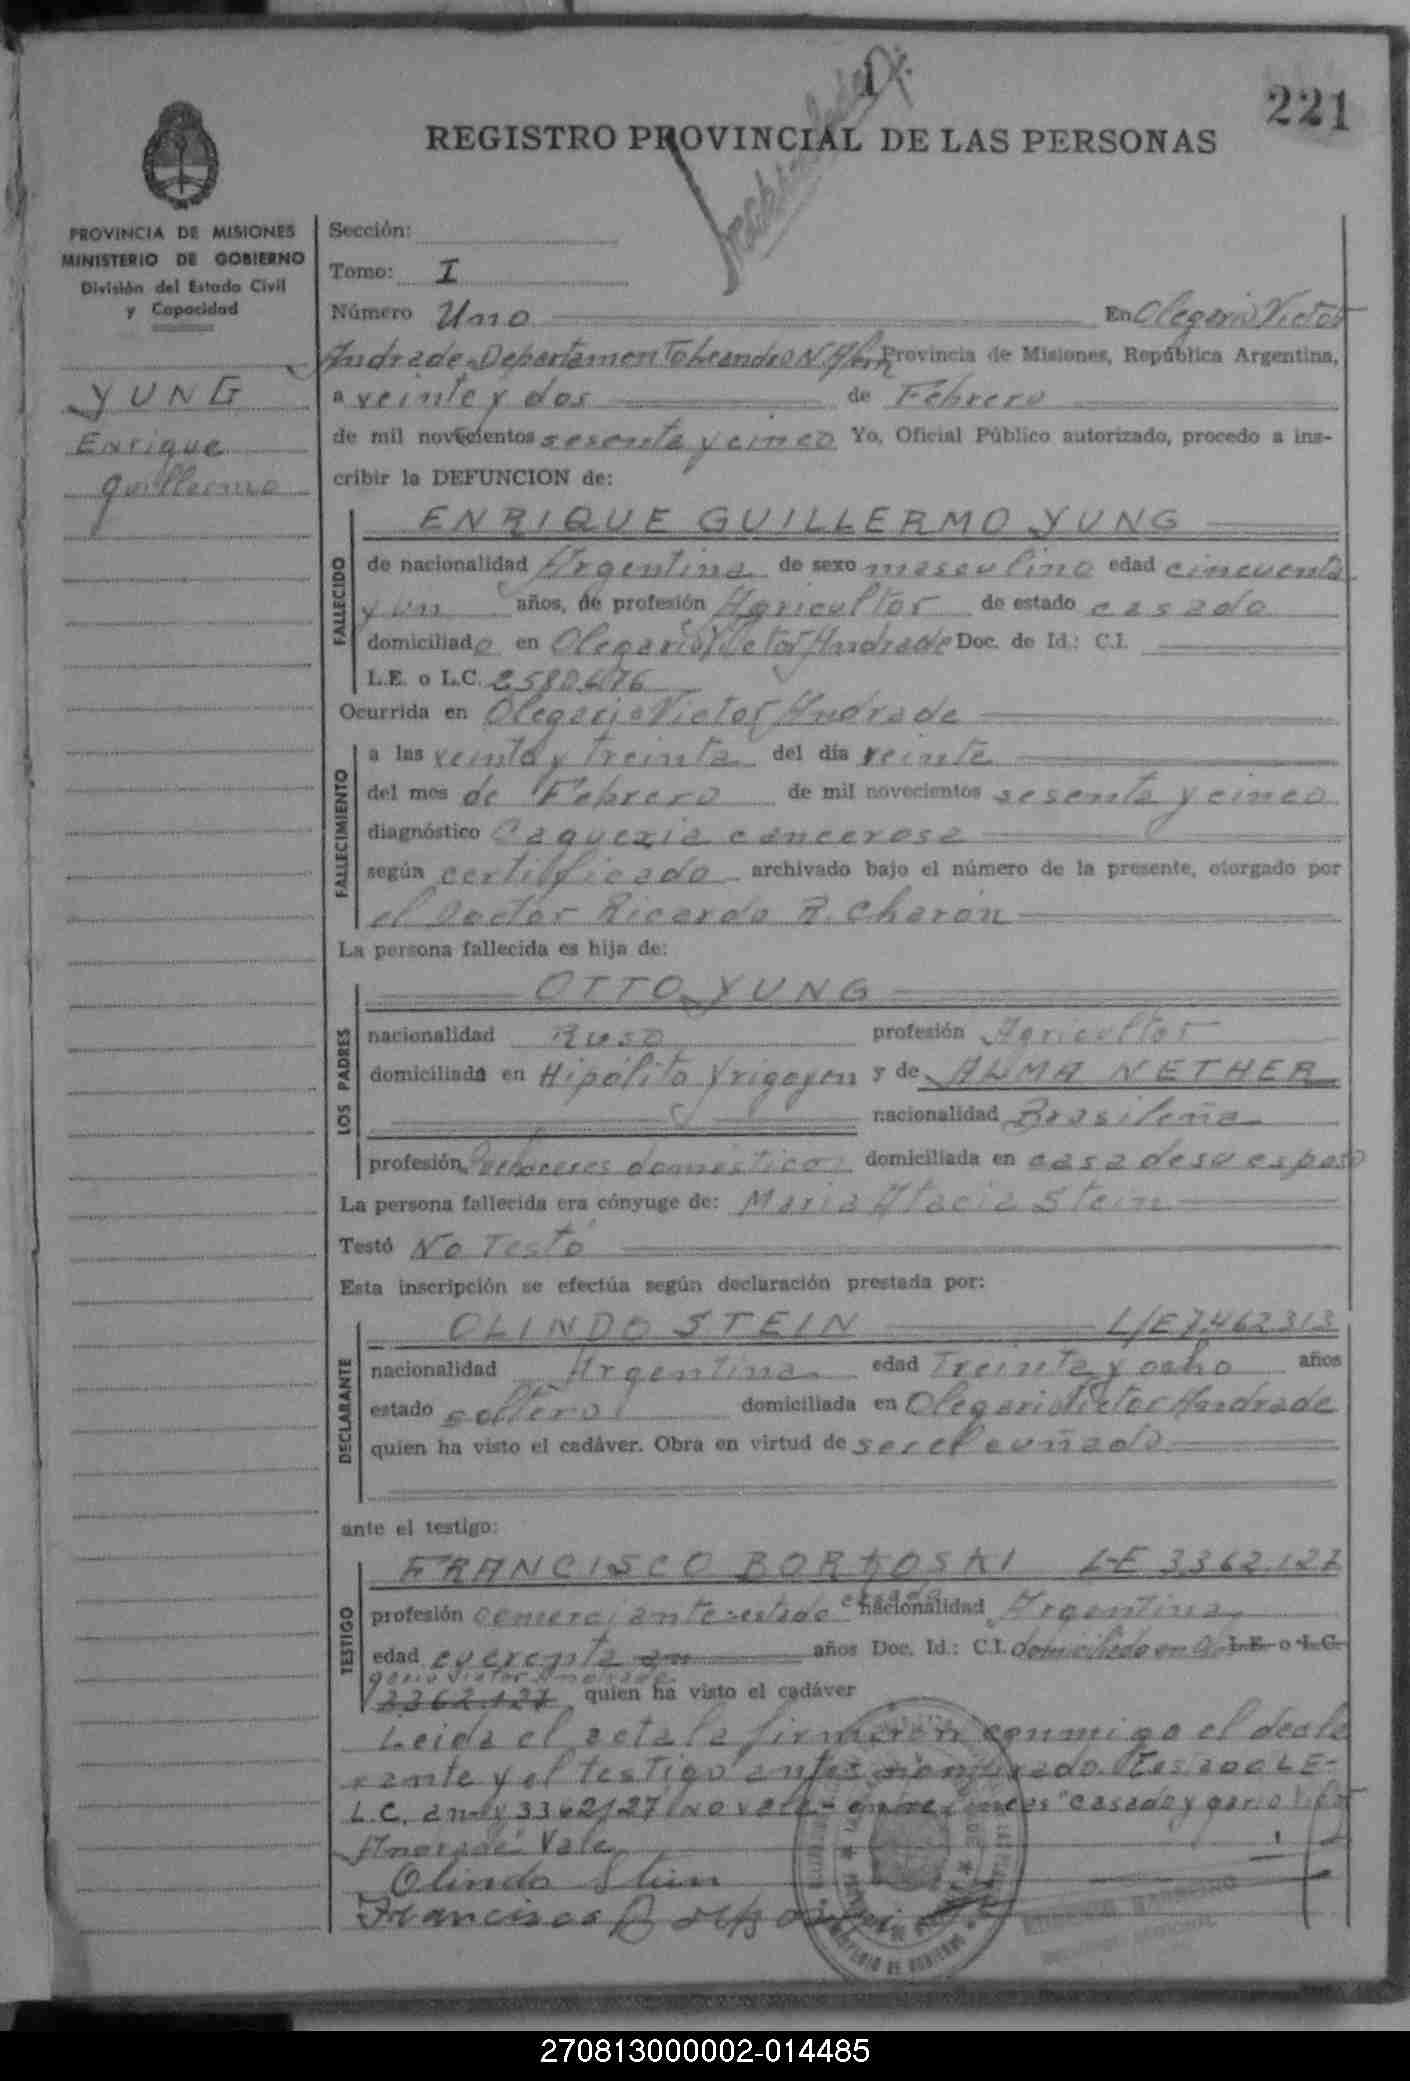 221
REGISTRO PROVINCIAL DE LAS PERSONAS
PROVINCIA DE MISIONES
MINISTERIO DE GOBIERNO
División del Estado Civil
y Capacidad
YUNG
Enrique
Guillermo
Sección:
Tomo: I
Número Uno En Olegario Victor
Andrade Departamento Leandro N. Alem Provincia de Misiones, República Argentina,
a veinte y dos de Febrero
de mil novecientos sesenta y cinco Yo, Oficial Público autorizado, procedo a ins-
cribir la DEFUNCION de:
ENRIQUE GUILLERMO YUNG
FALLECIDO
de nacionalidad Argentina de sexo masculino edad cincuenta
y un años, de profesión Agricultor de estado casado
domiciliado en Olegario Victor Andrade Doc. de Id.: C.I.
L.E. o L.C. 2580676
Ocurrida en Olegario Victor Andrade
FALLECIMIENTO
a las veinte y treinta del día veinte
del mes de Febrero de mil novecientos sesenta y cinco
diagnóstico Caquexia cancerosa
según certificado archivado bajo el número de la presente, otorgado por
el Doctor Ricardo R. Charón
La persona fallecida es hija de:
LOS PADRES
OTTO YUNG
nacionalidad Ruso profesión Agricultor
domiciliada en Hipólito Yrigoyen y de ALMA NETHER
nacionalidad Brasileña
profesión Quehaceres domésticos domiciliada en casa de su esposo
La persona fallecida era cónyuge de: Maria Stein
Testó No Testó
Esta inscripción se efectúa según declaración prestada por:
DECLARANTE
OLINDO STEIN L/E 7.462.313
nacionalidad Argentina edad Treinta y ocho años
estado soltero domiciliada en Olegario Victor Andrade
quien ha visto el cadáver. Obra en virtud de ser el cuñado
ante el testigo:
TESTIGO
FRANCISCO BORKOSKI L-E 3.362.127
casado
profesión comerciante-estado nacionalidad Argentina
edad cuarenta an años Doc. Id.: C.I. domiciliado en Ole L.E. o L.C.
gario Victor Andrade
3362.127 quien ha visto el cadáver
Leida el acta la firmaron conmigo el decla
rante y el testigo antes nombrado. Testado LE-
L.C. an y 3362127 no vale- entre lineas "casado y gario Victor
Andrade" Vale
Olindo Stein
Francisco Borkoski
270813000002-014485